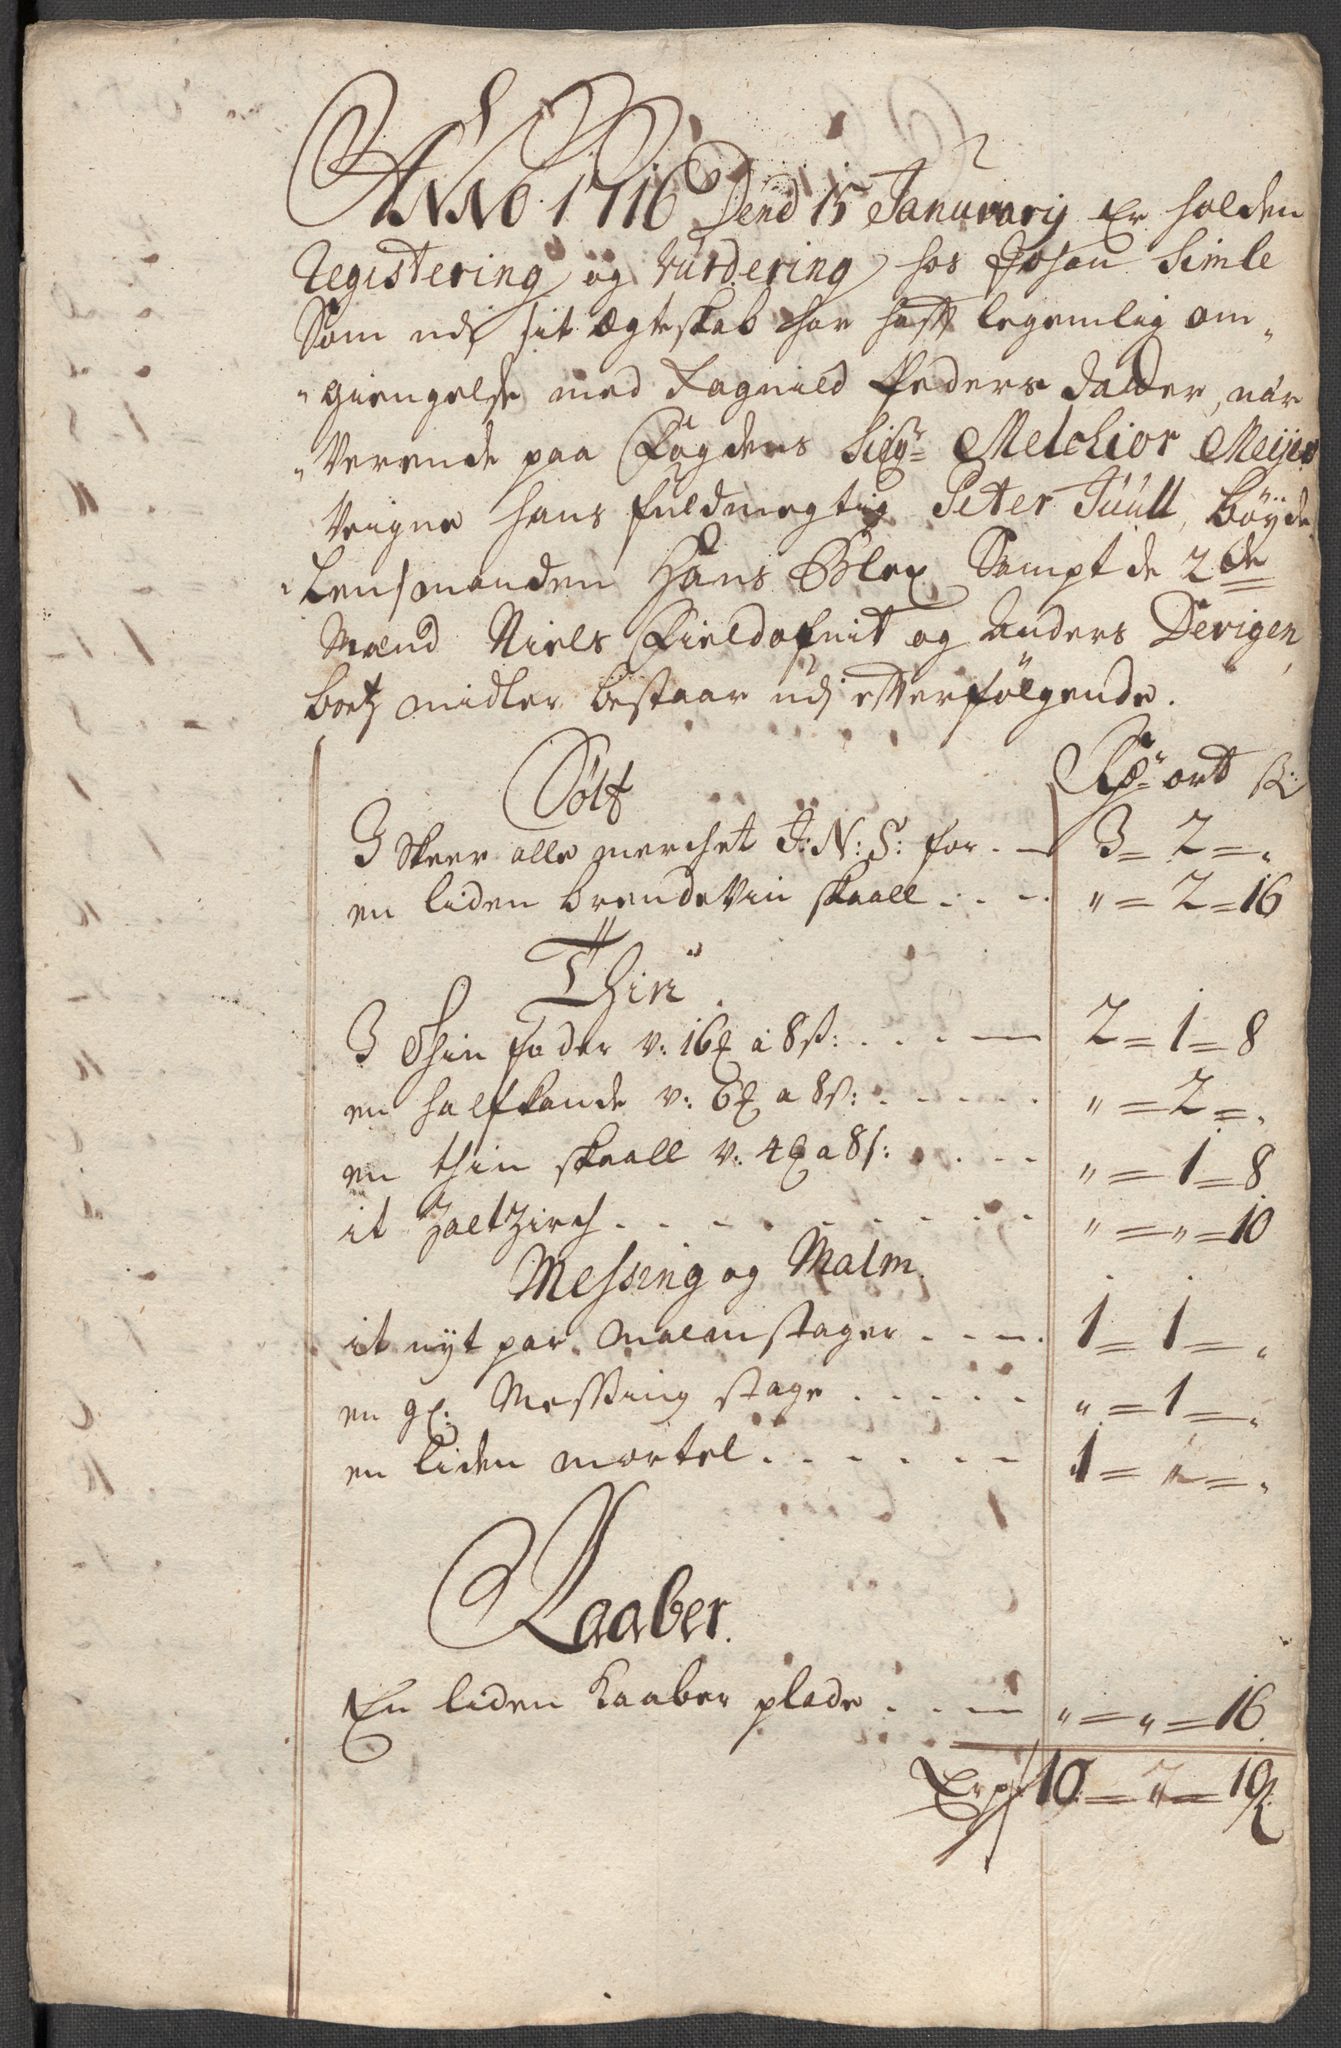 Anno 1716 Dend 15 Januarij Er holden
Registering og Vurdering hos Johan Simle
Som udj sit Ægteskab har hafft legemlig om„
„giengelse med Ragnild Peders Datter, nær
„Verende paa Fogdens Sigr Melchior Meijers
Veigne hans fuldmegtig Peter Juull, Böyde
„Lensmanden Hans Blex Sampt de 2de
Mænd Niels Fieldofnit og Anders Derigen,
boetz midler bestaar udj efterfölgende.
Sölf
Rdr ort ß:
3 Skeer alle merchet J: N: S: for . — 3 = 2 = „
en liden brendeViin skaall . . . . „ = 2 = 16
Thin
3 Thin fader v: 16 ℔ a 8 ß: . . . — 2 = 1 = 8
en halfkande v: 6 ℔ a 8 ß: . . . . . „ = 2 = „
en thin skaall v: 4 ℔ a 8 ß: . . . . „ = 1 = 8
it Saltzirch . . . . . . . . . . „ = „ = 10
Messing og Malm
it nyt par malmstager . . . . 1 = 1 = „
en gl: Messing stage . . . . . „ = 1 = „
en liden mortel . . . . . . 1 = „ = „
Kaaber.
En liden Kaaber plade . . . — „ = „ = 16
10 = „ = 10 ß